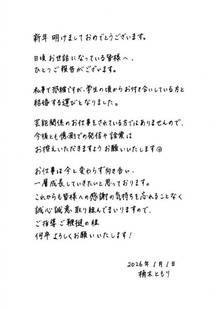 新年 明けましておめでとうございます。
日頃お世話になっている皆様へ、
ひとつご報告がございます。
私事で恐縮ですが、学生の頃からお付き合いしている方と
結婚する運びとなりました。
芸能関係のお仕事をされている方ではありませんので、
今後とも憶測での発信や詮索は
お控えいただきますようお願いいたします
お仕事は今と変わらず向き合い、
一層成長していきたいと思っております。
これからも皆様への感謝の気持ちを忘れることなく
誠心誠意取り組んでまいりますので、
ご指導ご鞭撻の程
何卒よろしくお願いいたします！
2026年1月1日
楠木ともり